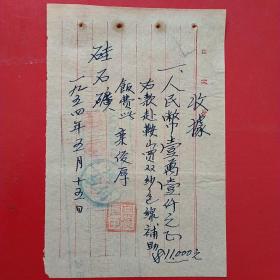 收據
一、人民幣壹萬壹仟元正
¥11.000元
右款赴鞍山買双紗包線補助
飯費此
葉俊厚
硅石礦
一九五四年五月十五日